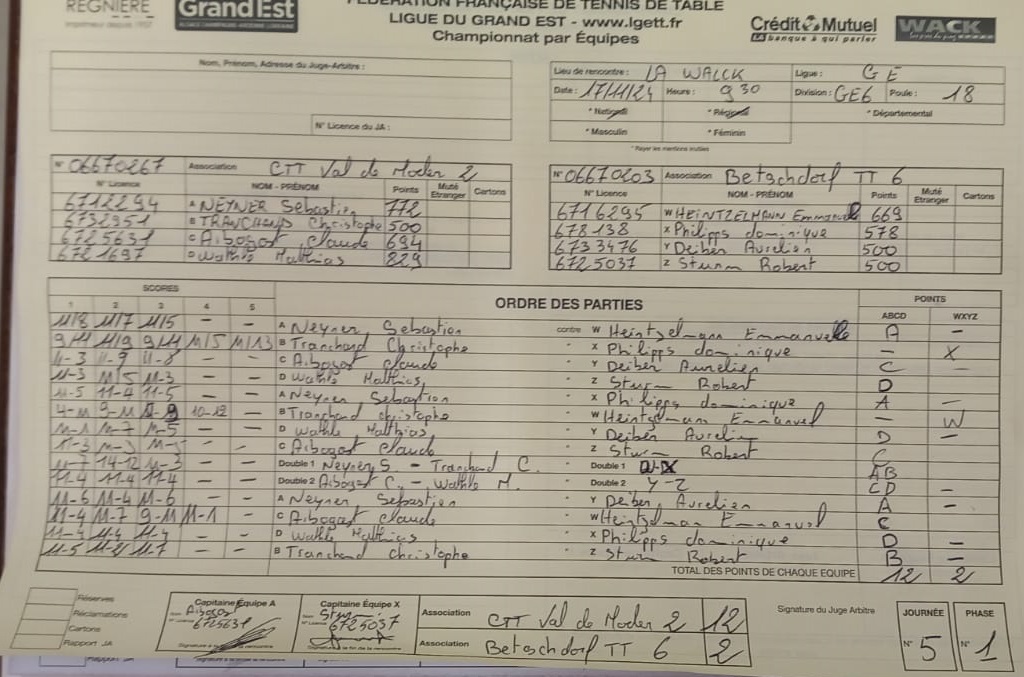 REGNIERE
Grand Est
FÉDÉRATION FRANÇAISE DE TENNIS DE TABLE
LIGUE DU GRAND EST - www.lgett.fr
Championnat par Équipes
Crédit Mutuel
LA banque à qui parler
WACK
Nom, Prénom, Adresse du Juge-Arbitre :
N° Licence du JA :
Lieu de rencontre : LA WALCK Ligue : GE
Date : 17/11/24 Heure : 9 30 Division : GE6 Poule : 18
* National * Régional * Départemental
* Masculin * Féminin
* Rayer les mentions inutiles
N° 06670267 Association CTT Val de Moder 2
N° Licence NOM - PRÉNOM Points Muté Etranger Cartons
6712294 A NEYNER Sebastien 772
6732951 B TRANCHAND Christophe 500
6725631 C Aibogast Claude 694
6721697 D Wathle Matthias 829
N° 06670203 Association Betschdorf TT 6
N° Licence NOM - PRÉNOM Points Muté Etranger Cartons
6716295 W HEINTZELMANN Emmanuel 669
678138 X Philipps dominique 578
6733476 Y Deiber Aurelien 500
6725037 Z Sturm Robert 500
SCORES ORDRE DES PARTIES POINTS
1 2 3 4 5 ABCD WXYZ
11/8 11/7 11/5 – – A Neyner Sebastien contre W Heintzelmann Emmanuel A –
9/11 11/9 9/11 11/5 11/13 B Tranchard Christophe " X Philipps dominique – X
11-3 11-9 11-8 – – C Aibogast Claude " Y Deiber Aurelien C –
11-3 11/5 11-3 – – D Wathle Matthias " Z Sturm Robert D
11-5 11-4 11-5 – – A Neyner Sebastien " X Philipps dominique A –
4-11 9-11 10-12 – B Tranchard Christophe " W Heintzelmann Emmanuel – W
11-1 11-7 11-5 – – D Wathle Matthias " Y Deiber Aurelien D –
11-3 – – C Aibogast Claude " Z Sturm Robert C
11-7 14-12 11-3 – – Double 1 Neyner S. - Tranchard C. " Double 1 AB
11-4 11-4 11-4 – – Double 2 Aibogast C. - Wathle M. " Double 2 Y-Z CD –
11-6 11-4 11-6 – – A Neyner Sebastien " Y Deiber Aurelien A –
11-4 11-7 9-11 11-1 – C Aibogast Claude " W Heintzelman Emmanuel C
11-4 11-4 11-4 – – D Wathle Matthias " X Philipps dominique D –
11-5 11-7 – – B Tranchard Christophe " Z Sturm Robert B –
TOTAL DES POINTS DE CHAQUE EQUIPE 12 2
Réserves
Réclamations
Cartons
Rapport JA
Capitaine Équipe A
Nom Aibogast
N° Licence 6725631
Capitaine Équipe X
Sturm
N° Licence 6725037
Association CTT Val de Moder 2 12
Association Betschdorf TT 6 2
Signature du Juge Arbitre
JOURNÉE
N° 5
PHASE
N° 1
Rapport JA